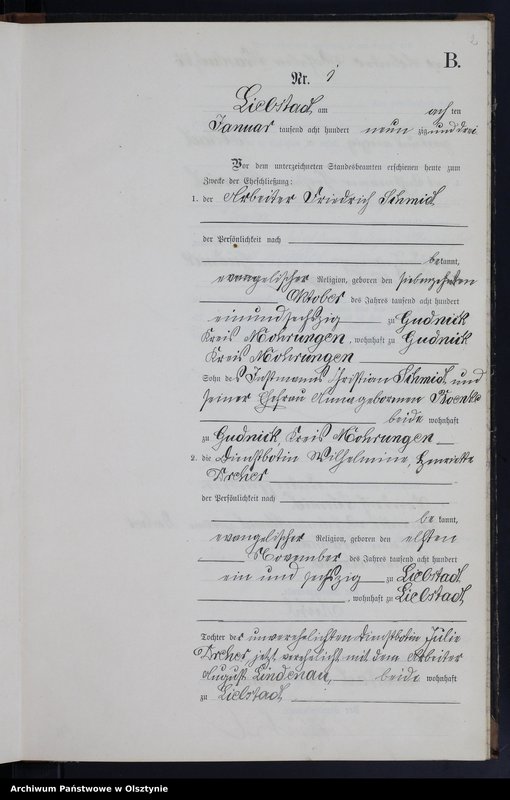 2
B.
Nr. 1
Liebstadt, am acht ten
Januar tausend acht hundert neun zig und drei
Vor dem unterzeichneten Standesbeamten erschienen heute zum
Zwecke der Eheschließung:
1. der Arbeiter Friedrich Schmidt
der Persönlichkeit nach
bekannt,
evangelischer Religion, geboren den siebenzehnten
Oktober des Jahres tausend acht hundert
einundsechszig zu Gudnick
Kreis Mohrungen, wohnhaft zu Gudnick
Kreis Mohrungen
Sohn des Instmanns Christian Schmidt und
seiner Ehefrau Anna geborenen
beide wohnhaft
zu Gudnick, Kreis Mohrungen
2. die Dienstbotin Wilhelmine, Henriette
der Persönlichkeit nach
bekannt,
evangelischer Religion, geboren den elften
November des Jahres tausend acht hundert
ein und sechszig zu Liebstadt
, wohnhaft zu Liebstadt
Tochter der unverehelichten Dienstbotin Julie
jetzt verehelicht mit dem Arbeiter
August Lindenau, beide wohnhaft
zu Liebstadt
Archiwum Państwowe w Olsztynie